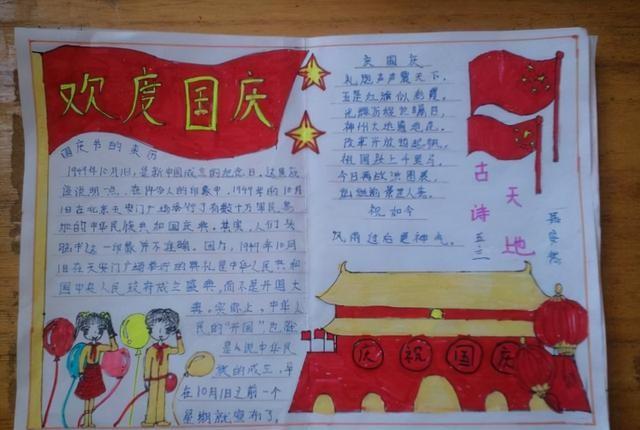 欢度国庆
国庆节的来历
1949年10月1日,是新中国成立的纪念日。这里应
该说明一点,在许多人的印象中,1949年的10月
1日在北京天安门广场举行了有数十万军民参
加的中华民族共和国庆典。其实,人们头
脑中这一印象并不准确。因为,1949年10月
1日在天安门广场举行的典礼是中华人民共和
国中央人民政府成立盛典,而不是开国大
典。实际上,中华人
民的"开国",也就
是人说中华民
族的成立,早
在10月1日之前一个
星期就宣布了。
国庆
礼炮声声震天下,
五星红旗似彩霞。
神州大地遍地花。
改革开放
祖国
今日再放洪图展,
祝如今
风雨过后更神气。
古诗
天地
五三
庆祝国庆